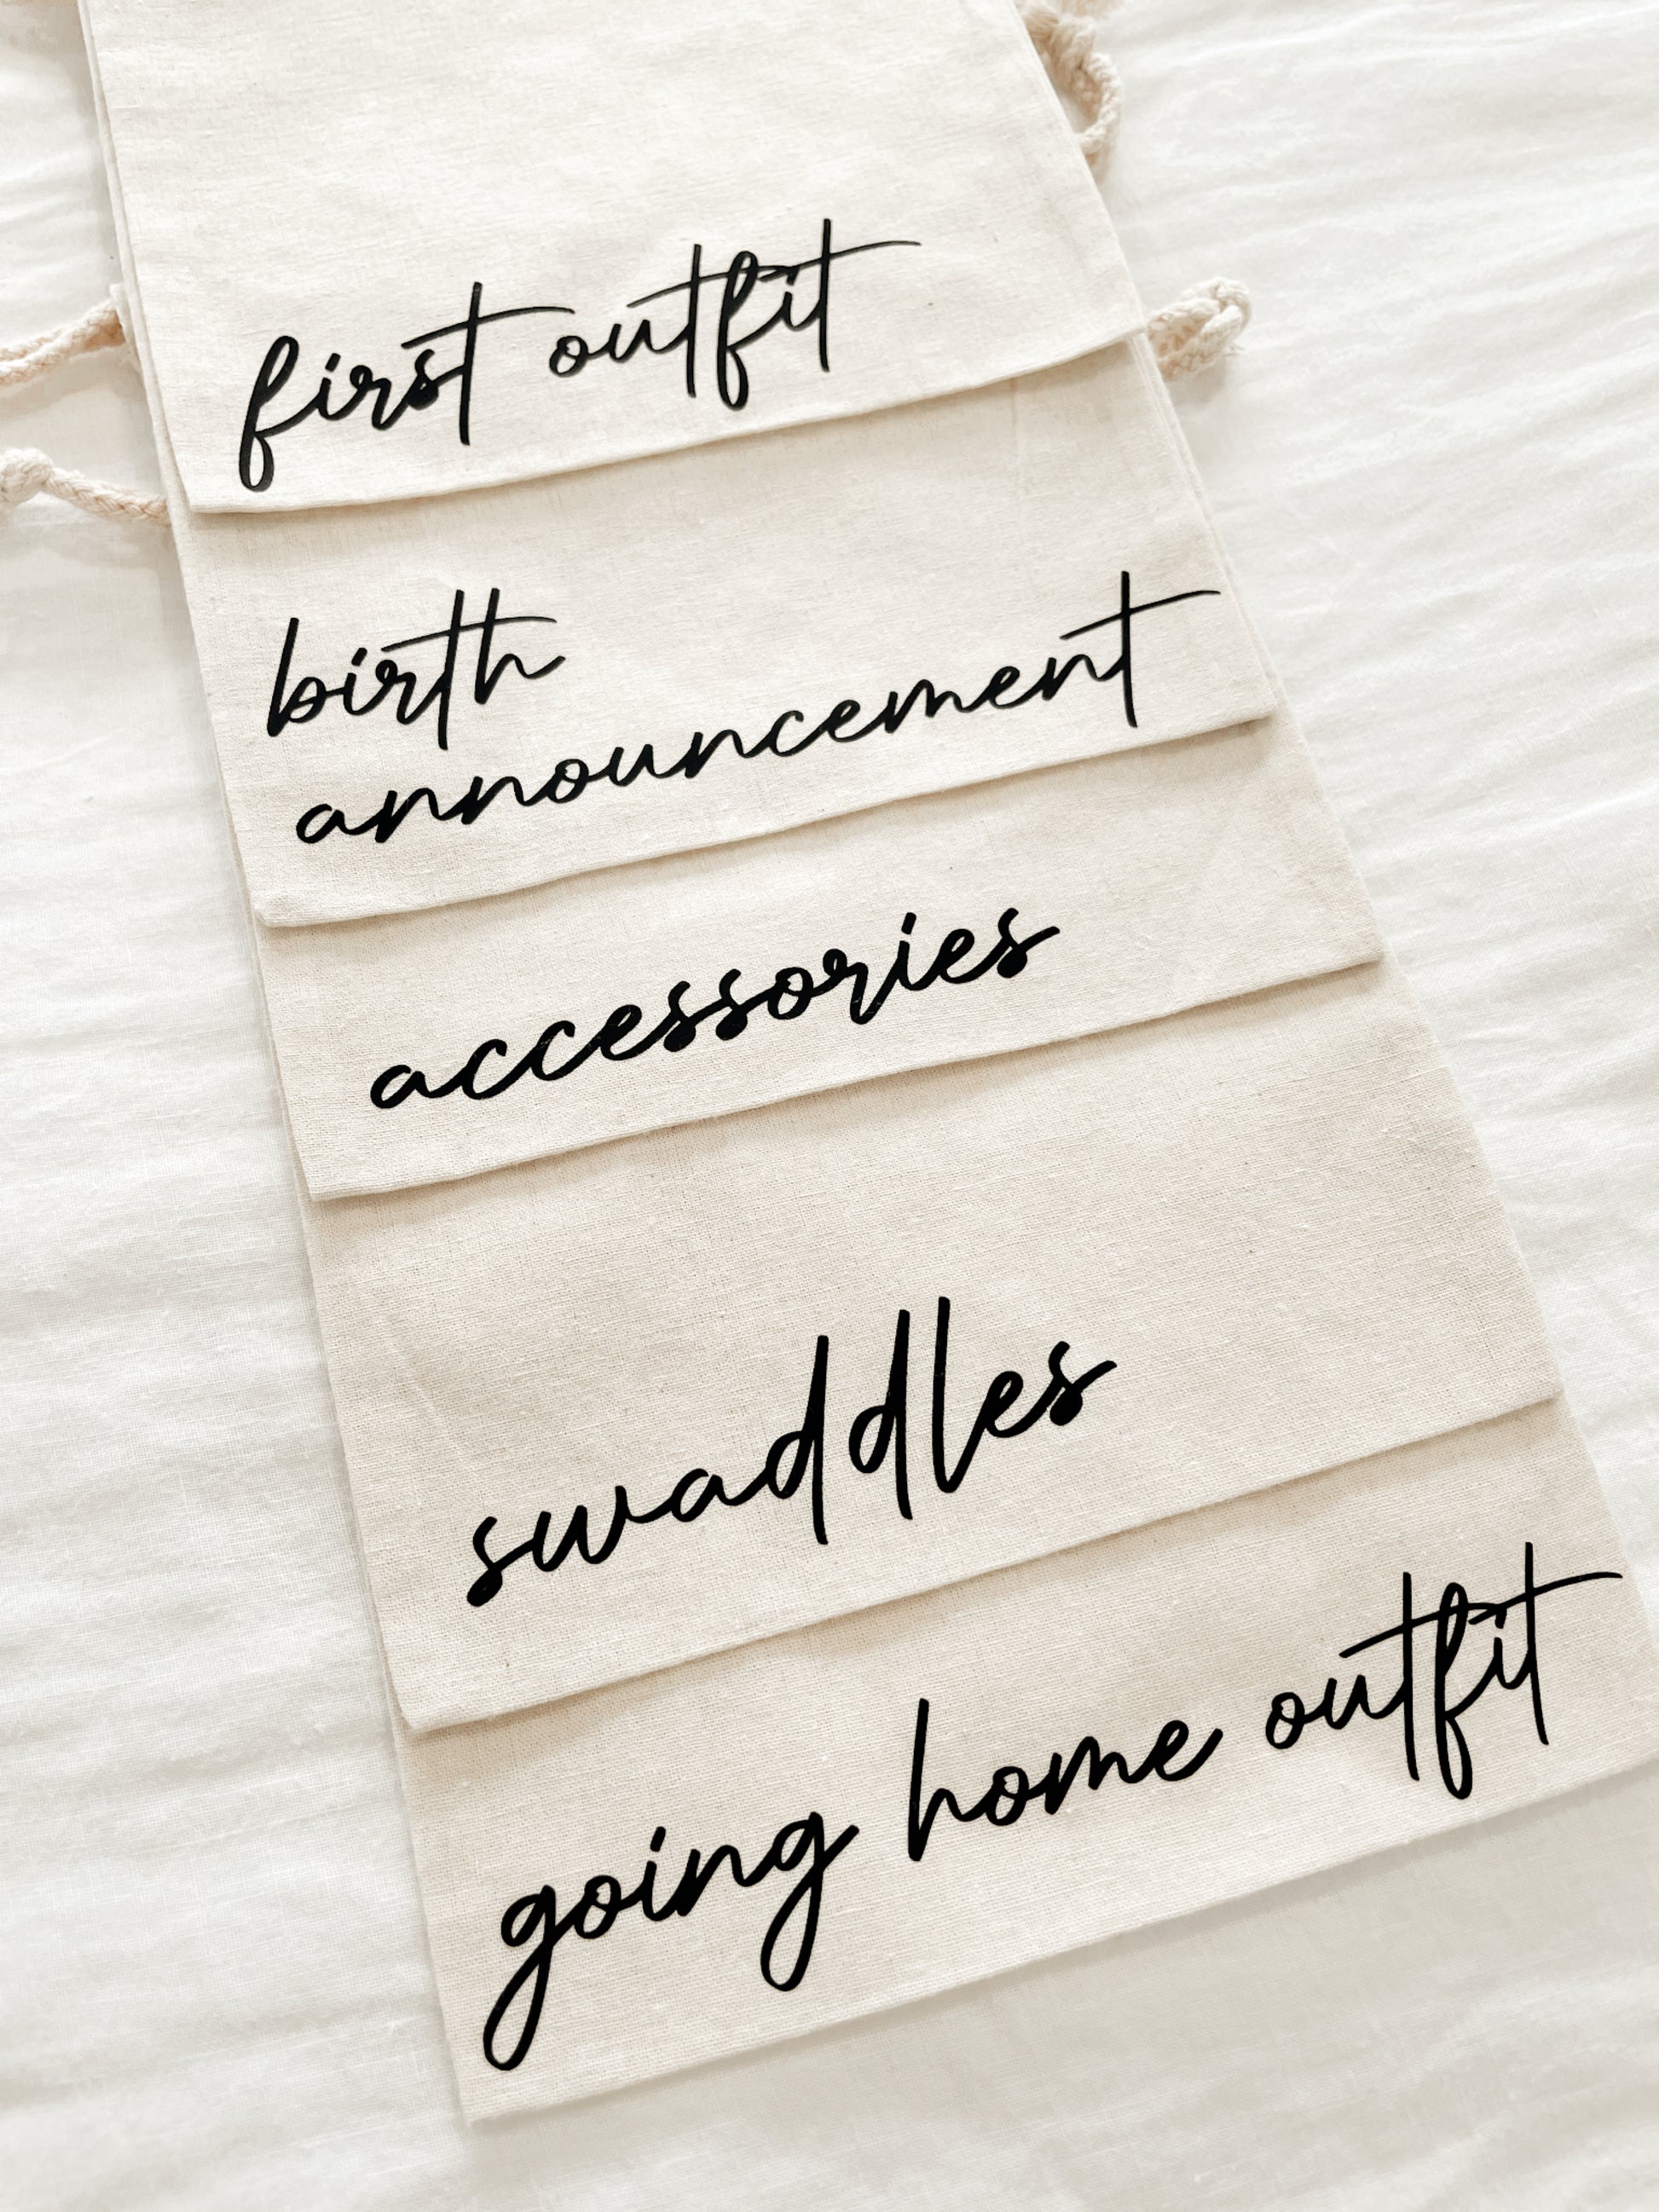 first outfit
birth
announcement
accessories
swaddles
going home outfit